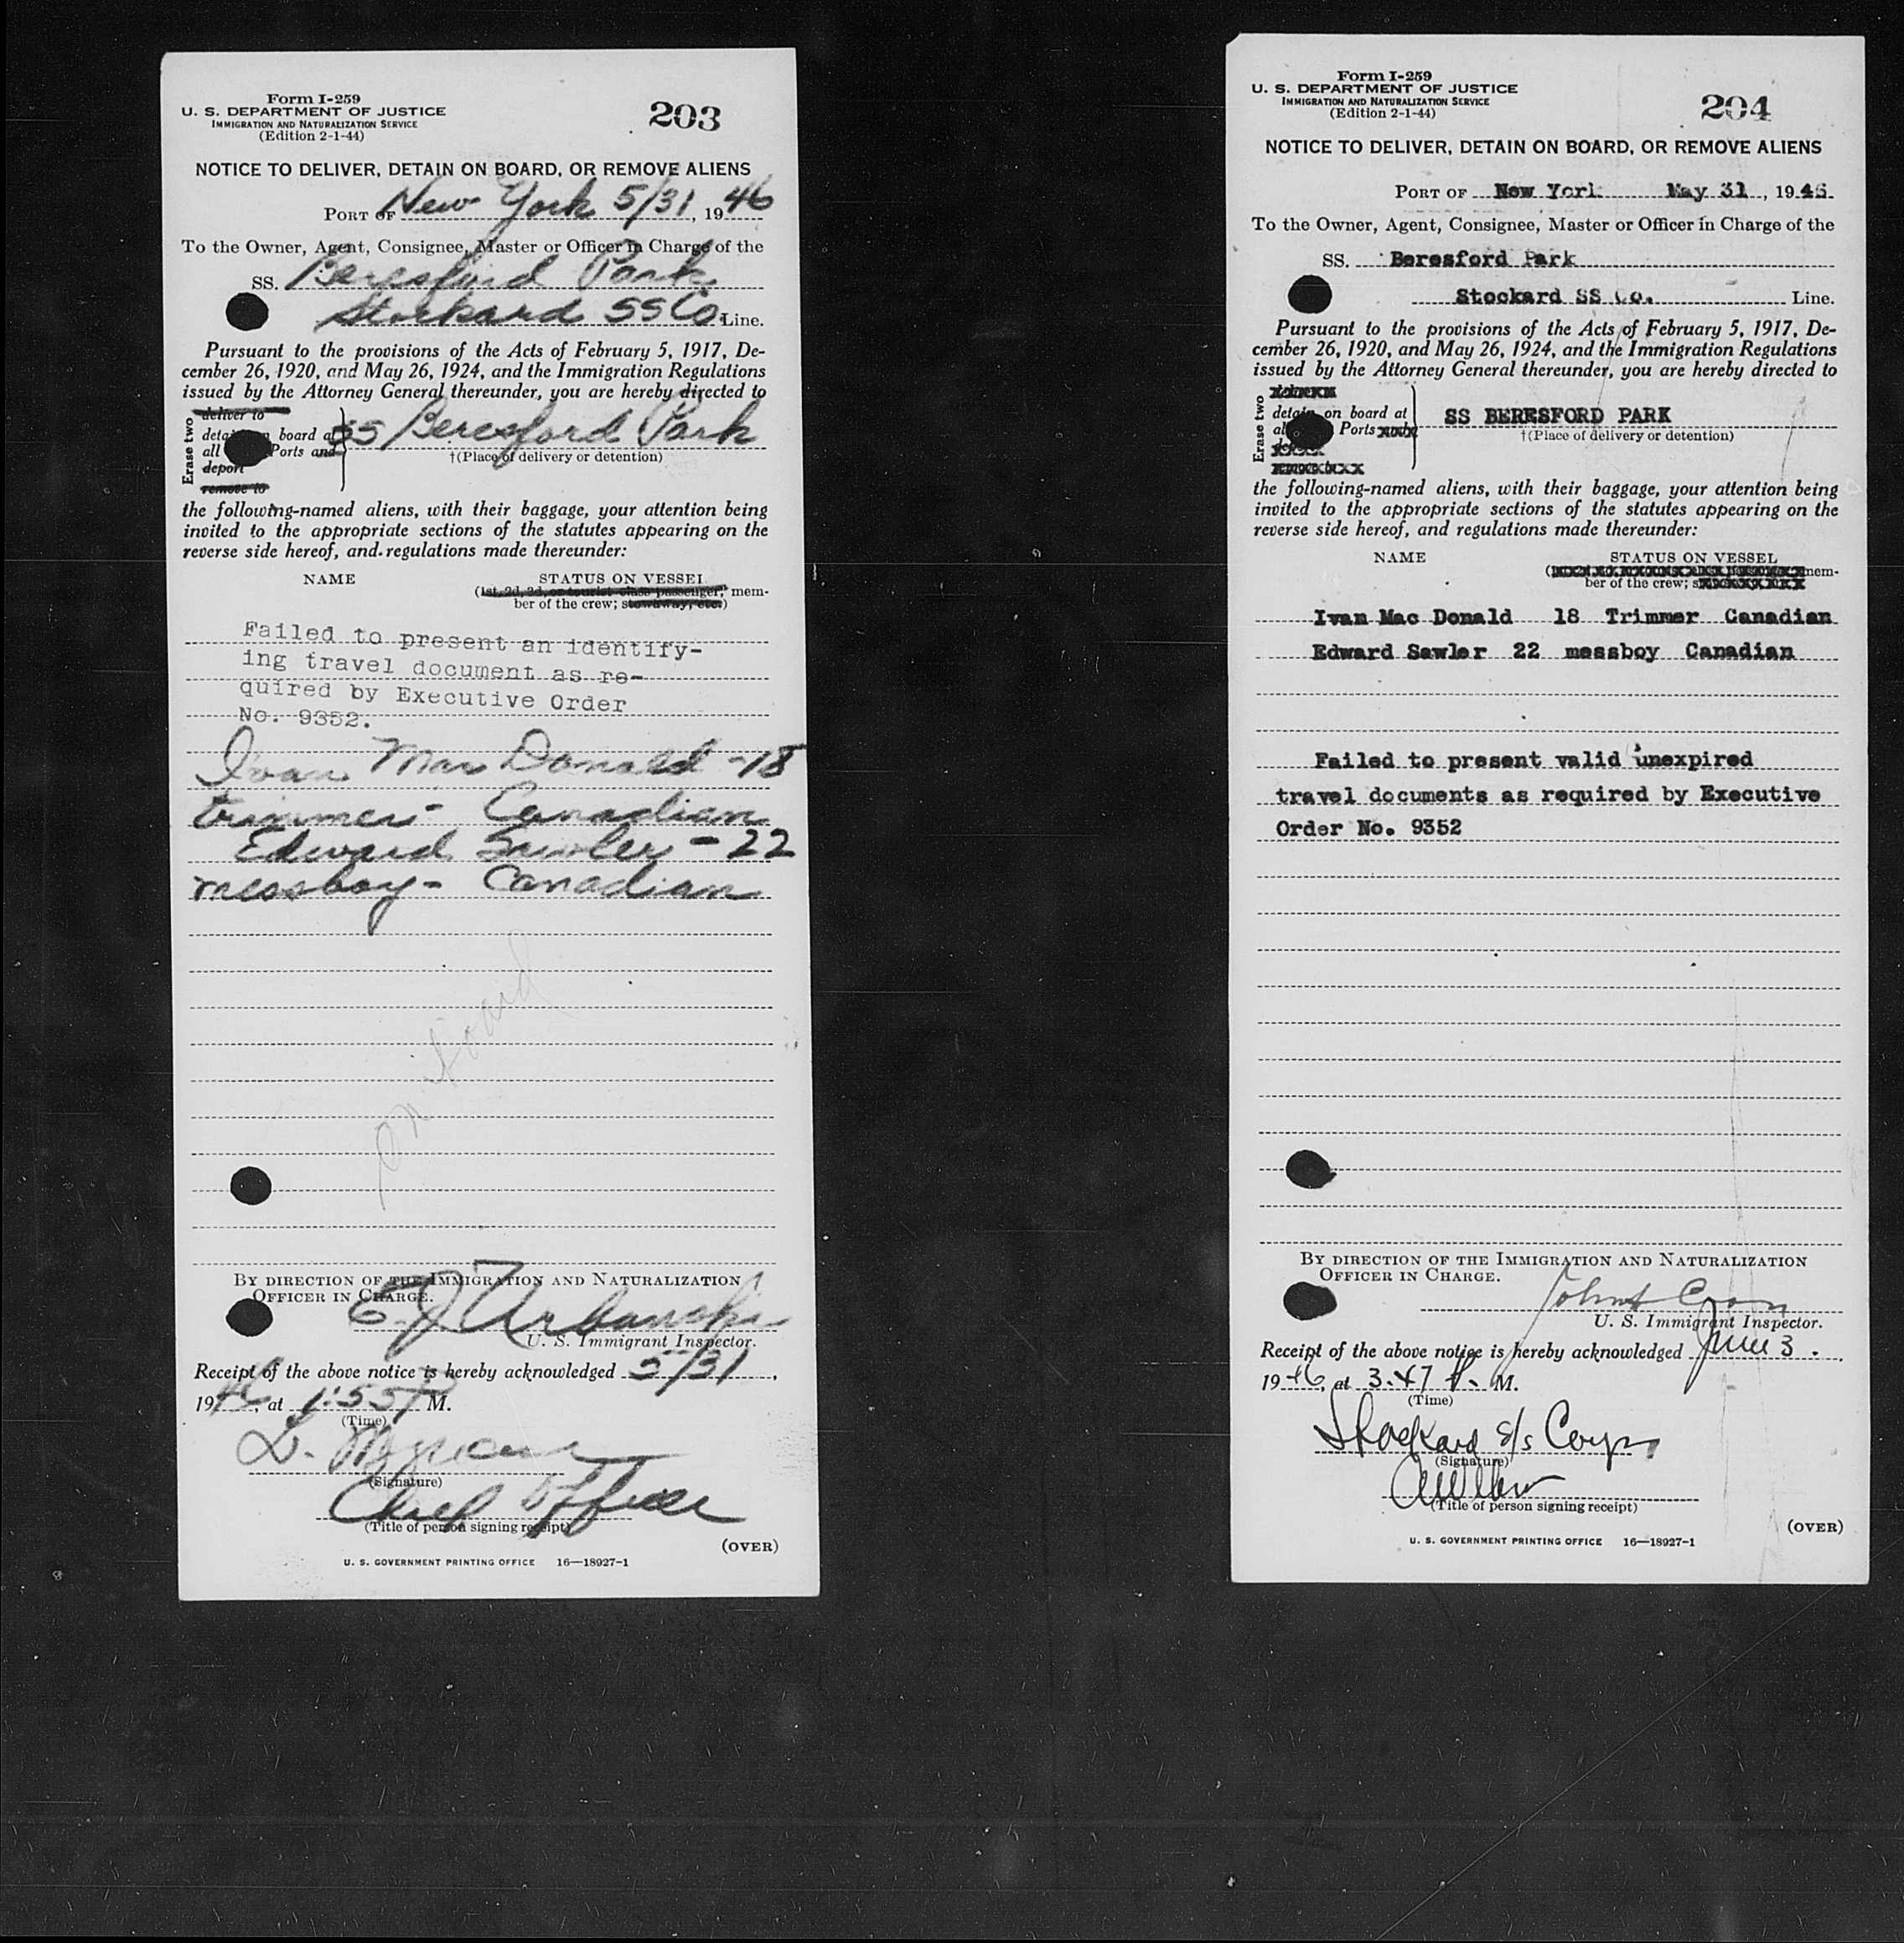 Form I-259
U. S. DEPARTMENT OF JUSTICE
IMMIGRATION AND NATURALIZATION SERVICE
(Edition 2-1-44)
203
NOTICE TO DELIVER, DETAIN ON BOARD, OR REMOVE ALIENS
PORT OF New York 5/31, 1946
To the Owner, Agent, Consignee, Master or Officer in Charge of the
SS. Beresford Park
Stockard SS Co. Line.
Pursuant to the provisions of the Acts of February 5, 1917, De-
cember 26, 1920, and May 26, 1924, and the Immigration Regulations
issued by the Attorney General thereunder, you are hereby directed to
Erase two
deliver to
board at
SS Beresford Park
all Ports and
†(Place of delivery or detention)
deport
remove to
the following-named aliens, with their baggage, your attention being
invited to the appropriate sections of the statutes appearing on the
reverse side hereof, and regulations made thereunder:
NAME STATUS ON VESSEL
(1st, 2d, 3d, or tourist class passenger; mem-
ber of the crew; stowaway, etc.)
Failed to present an identify-
ing travel document as re-
quired by Executive Order
No. 9352.
Ivan Mac Donald - 18
trimmer - Canadian
Edward Sawler - 22
messboy - Canadian
on board
BY DIRECTION OF THE IMMIGRATION AND NATURALIZATION
OFFICER IN CHARGE.
E J Urbanski
U. S. Immigrant Inspector.
Receipt of the above notice is hereby acknowledged 5/31,
1946, at 1:55 P M.
(Time)
(Signature)
Chief Officer
(Title of person signing receipt)
(OVER)
U. S. GOVERNMENT PRINTING OFFICE 16—18927-1
Form I-259
U. S. DEPARTMENT OF JUSTICE
IMMIGRATION AND NATURALIZATION SERVICE
(Edition 2-1-44)
204
NOTICE TO DELIVER, DETAIN ON BOARD, OR REMOVE ALIENS
PORT OF New York May 31, 1946.
To the Owner, Agent, Consignee, Master or Officer in Charge of the
SS. Beresford Park
Stockard SS Co. Line.
Pursuant to the provisions of the Acts of February 5, 1917, De-
cember 26, 1920, and May 26, 1924, and the Immigration Regulations
issued by the Attorney General thereunder, you are hereby directed to
Erase two
detain on board at
SS BERESFORD PARK
Ports
†(Place of delivery or detention)
the following-named aliens, with their baggage, your attention being
invited to the appropriate sections of the statutes appearing on the
reverse side hereof, and regulations made thereunder:
NAME STATUS ON VESSEL
mem-
ber of the crew;
Ivan Mac Donald 18 Trimmer Canadian
Edward Sawler 22 messboy Canadian
Failed to present valid unexpired
travel documents as required by Executive
Order No. 9352
BY DIRECTION OF THE IMMIGRATION AND NATURALIZATION
OFFICER IN CHARGE.
U. S. Immigrant Inspector.
Receipt of the above notice is hereby acknowledged June 3.
1946, at 3.47 P. M.
(Time)
Stockard S/s Corp
(Signature)
(Title of person signing receipt)
(OVER)
U. S. GOVERNMENT PRINTING OFFICE 16—18927-1